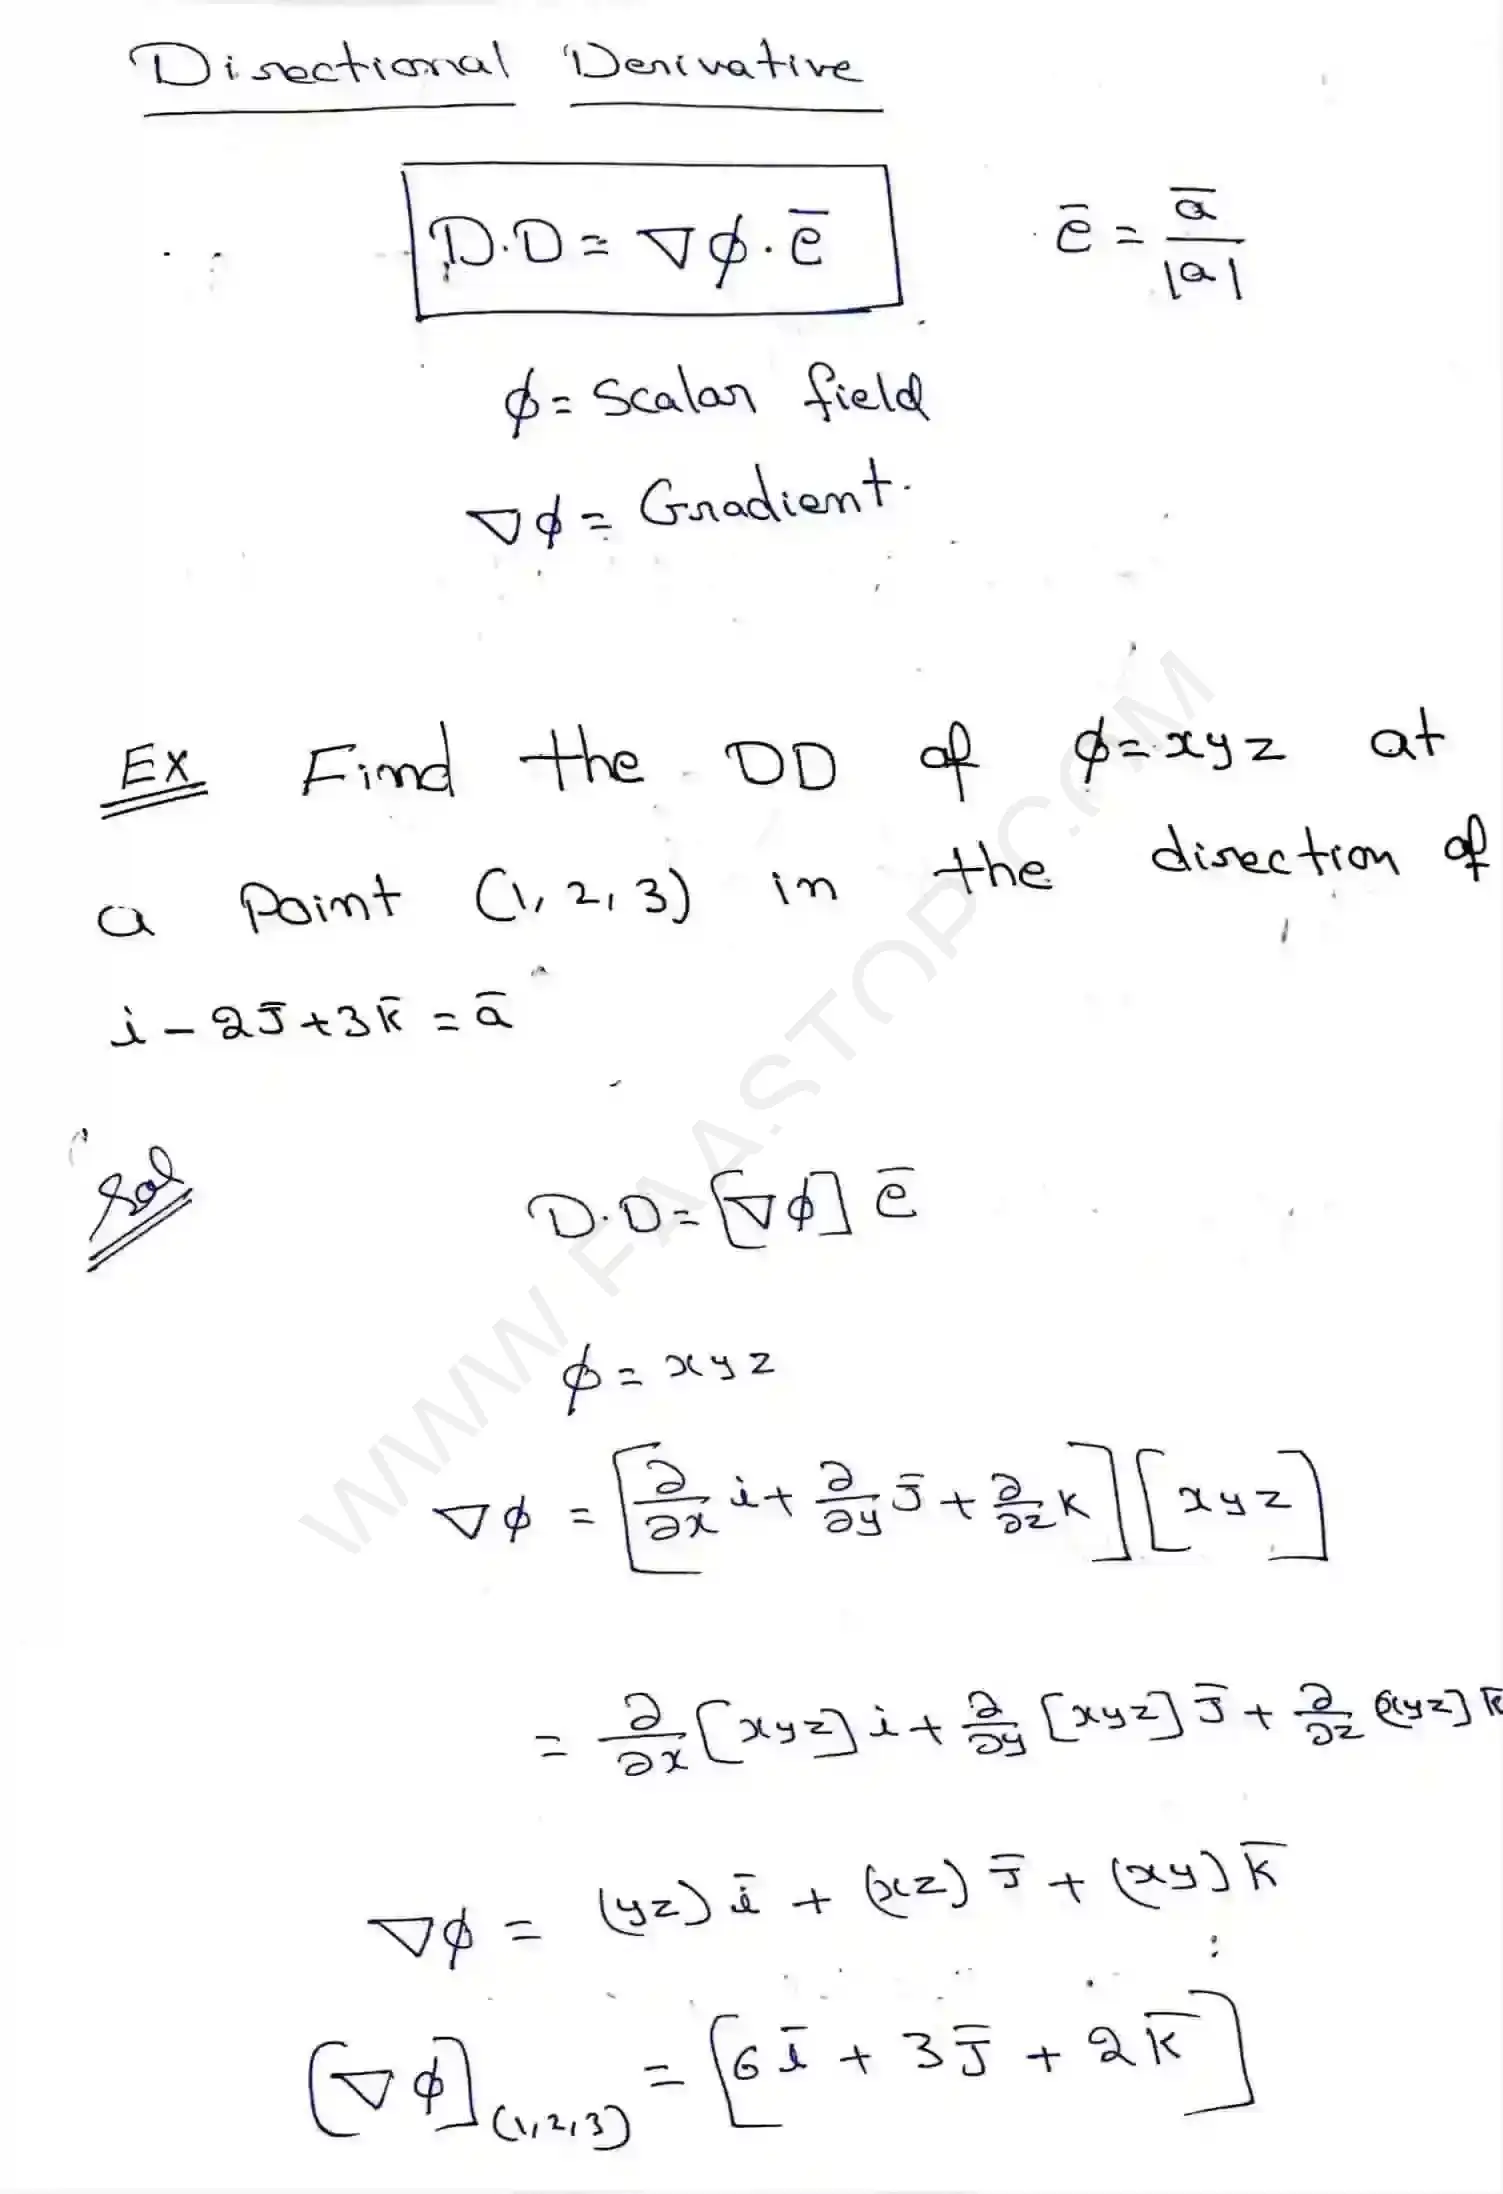 Directional Derivative
D.D = ∇φ . ē    ē = ā / |a|
φ = Scalar field
∇φ = Gradient.
Ex Find the DD of φ = xyz at
a Point (1, 2, 3) in the direction of
i - 2J̄ + 3k̄ = ā
Sol D.D = [∇φ] ē
φ = xyz
∇φ = [∂/∂x i + ∂/∂y J̄ + ∂/∂z k] [xyz]
= ∂/∂x [xyz] i + ∂/∂y [xyz] J̄ + ∂/∂z (xyz] k̄
∇φ = (yz) ī + (xz) J̄ + (xy) k̄
[∇φ](1,2,3) = [6 ī + 3 J̄ + 2 k̄]
WWW FAASTOP.COM